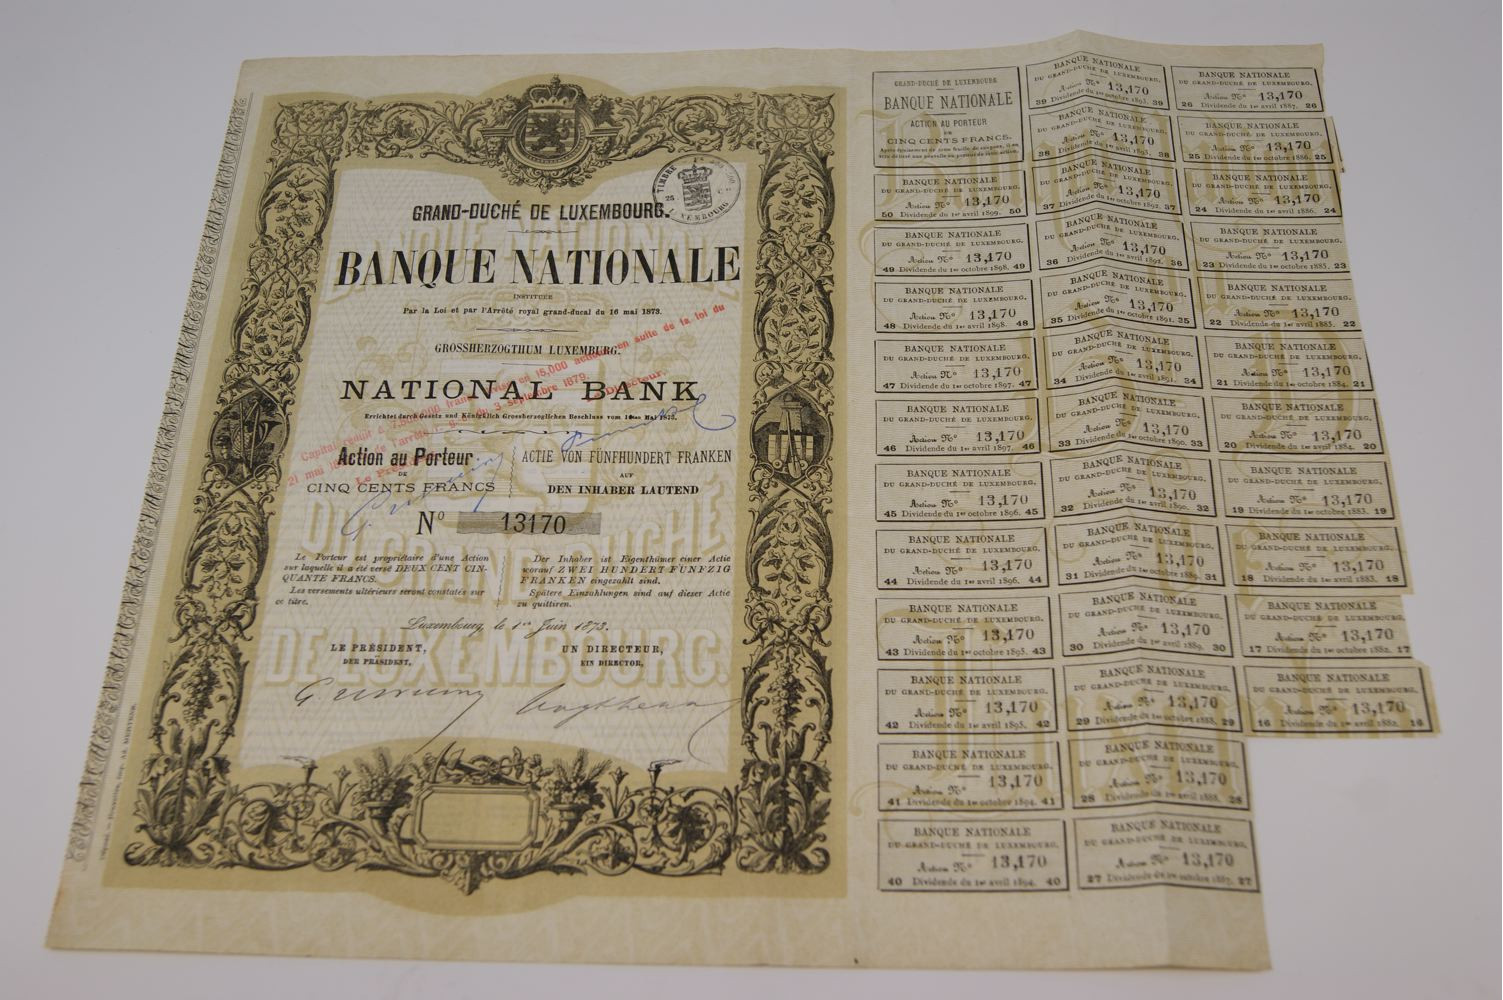 GRAND-DUCHÉ DE LUXEMBOURG.
BANQUE NATIONALE
INSTITUÉE
Par la Loi et par l'Arrêté royal grand-ducal du 16 mai 1873.
GROSSHERZOGTHUM LUXEMBURG.
NATIONAL BANK
Errichtet durch Gesetz und Königlich Grossherzoglichen Beschluss vom 16ten Mai 1873.
Action au Porteur
DE
CINQ CENTS FRANCS
ACTIE VON FÜNFHUNDERT FRANKEN
AUF
DEN INHABER LAUTEND
No 13170
Le Porteur est propriétaire d'une Action
sur laquelle il a été versé DEUX CENT CIN-
QUANTE FRANCS.
Les versements ultérieurs seront constatés sur
ce titre.
Der Inhaber ist Eigenthümer einer Actie
worauf ZWEI HUNDERT FÜNFZIG
FRANKEN eingezahlt sind.
Spätere Einzahlungen sind auf dieser Actie
zu quittiren.
Luxembourg, le 1er Juin 1873.
LE PRÉSIDENT,
DER PRÄSIDENT,
UN DIRECTEUR,
EIN DIRECTOR,
GRAND-DUCHÉ DE LUXEMBOURG
BANQUE NATIONALE
ACTION AU PORTEUR
DE
CINQ CENTS FRANCS.
BANQUE NATIONALE
DU GRAND-DUCHÉ DE LUXEMBOURG.
Action No 13,170
50 Dividende du 1er avril 1899. 50
BANQUE NATIONALE
DU GRAND-DUCHÉ DE LUXEMBOURG.
Action No 13,170
49 Dividende du 1er octobre 1898. 49
BANQUE NATIONALE
DU GRAND-DUCHÉ DE LUXEMBOURG.
Action No 13,170
48 Dividende du 1er avril 1898. 48
BANQUE NATIONALE
DU GRAND-DUCHÉ DE LUXEMBOURG.
Action No 13,170
47 Dividende du 1er octobre 1897. 47
BANQUE NATIONALE
DU GRAND-DUCHÉ DE LUXEMBOURG.
Action No 13,170
46 Dividende du 1er avril 1897. 46
BANQUE NATIONALE
DU GRAND-DUCHÉ DE LUXEMBOURG.
Action No 13,170
45 Dividende du 1er octobre 1896. 45
BANQUE NATIONALE
DU GRAND-DUCHÉ DE LUXEMBOURG.
Action No 13,170
44 Dividende du 1er avril 1896. 44
BANQUE NATIONALE
DU GRAND-DUCHÉ DE LUXEMBOURG.
Action No 13,170
43 Dividende du 1er octobre 1895. 43
BANQUE NATIONALE
DU GRAND-DUCHÉ DE LUXEMBOURG.
Action No 13,170
42 Dividende du 1er avril 1895. 42
BANQUE NATIONALE
DU GRAND-DUCHÉ DE LUXEMBOURG.
Action No 13,170
41 Dividende du 1er octobre 1894. 41
BANQUE NATIONALE
DU GRAND-DUCHÉ DE LUXEMBOURG.
Action No 13,170
40 Dividende du 1er avril 1894. 40
BANQUE NATIONALE
DU GRAND-DUCHÉ DE LUXEMBOURG.
Action No 13,170
39 Dividende du 1er octobre 1893. 39
BANQUE NATIONALE
DU GRAND-DUCHÉ DE LUXEMBOURG.
Action No 13,170
38 Dividende du 1er avril 1893. 38
BANQUE NATIONALE
DU GRAND-DUCHÉ DE LUXEMBOURG.
Action No 13,170
37 Dividende du 1er octobre 1892. 37
BANQUE NATIONALE
DU GRAND-DUCHÉ DE LUXEMBOURG.
Action No 13,170
36 Dividende du 1er avril 1892. 36
BANQUE NATIONALE
DU GRAND-DUCHÉ DE LUXEMBOURG.
Action No 13,170
35 Dividende du 1er octobre 1891. 35
BANQUE NATIONALE
DU GRAND-DUCHÉ DE LUXEMBOURG.
Action No 13,170
34 Dividende du 1er avril 1891. 34
BANQUE NATIONALE
DU GRAND-DUCHÉ DE LUXEMBOURG.
Action No 13,170
33 Dividende du 1er octobre 1890. 33
BANQUE NATIONALE
DU GRAND-DUCHÉ DE LUXEMBOURG.
Action No 13,170
32 Dividende du 1er avril 1890. 32
BANQUE NATIONALE
DU GRAND-DUCHÉ DE LUXEMBOURG.
Action No 13,170
31 Dividende du 1er octobre 1889. 31
BANQUE NATIONALE
DU GRAND-DUCHÉ DE LUXEMBOURG.
Action No 13,170
30 Dividende du 1er avril 1889. 30
BANQUE NATIONALE
DU GRAND-DUCHÉ DE LUXEMBOURG.
Action No 13,170
29 Dividende du 1er octobre 1888. 29
BANQUE NATIONALE
DU GRAND-DUCHÉ DE LUXEMBOURG.
Action No 13,170
28 Dividende du 1er avril 1888. 28
BANQUE NATIONALE
DU GRAND-DUCHÉ DE LUXEMBOURG.
Action No 13,170
27 Dividende du 1er octobre 1887. 27
BANQUE NATIONALE
DU GRAND-DUCHÉ DE LUXEMBOURG.
Action No 13,170
26 Dividende du 1er avril 1887. 26
BANQUE NATIONALE
DU GRAND-DUCHÉ DE LUXEMBOURG.
Action No 13,170
25 Dividende du 1er octobre 1886. 25
BANQUE NATIONALE
DU GRAND-DUCHÉ DE LUXEMBOURG.
Action No 13,170
24 Dividende du 1er avril 1886. 24
BANQUE NATIONALE
DU GRAND-DUCHÉ DE LUXEMBOURG.
Action No 13,170
23 Dividende du 1er octobre 1885. 23
BANQUE NATIONALE
DU GRAND-DUCHÉ DE LUXEMBOURG.
Action No 13,170
22 Dividende du 1er avril 1885. 22
BANQUE NATIONALE
DU GRAND-DUCHÉ DE LUXEMBOURG.
Action No 13,170
21 Dividende du 1er octobre 1884. 21
BANQUE NATIONALE
DU GRAND-DUCHÉ DE LUXEMBOURG.
Action No 13,170
20 Dividende du 1er avril 1884. 20
BANQUE NATIONALE
DU GRAND-DUCHÉ DE LUXEMBOURG.
Action No 13,170
19 Dividende du 1er octobre 1883. 19
BANQUE NATIONALE
DU GRAND-DUCHÉ DE LUXEMBOURG.
Action No 13,170
18 Dividende du 1er avril 1883. 18
BANQUE NATIONALE
DU GRAND-DUCHÉ DE LUXEMBOURG.
Action No 13,170
17 Dividende du 1er octobre 1882. 17
BANQUE NATIONALE
DU GRAND-DUCHÉ DE LUXEMBOURG.
Action No 13,170
16 Dividende du 1er avril 1882. 16